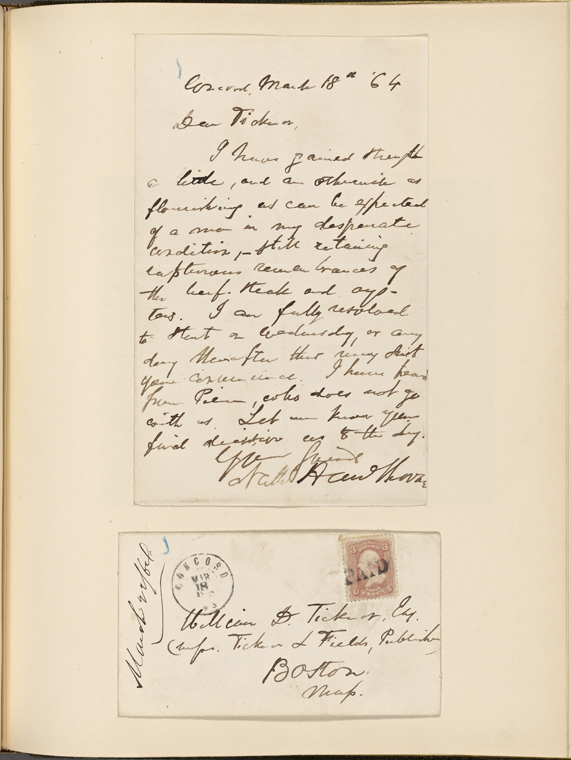 Concord, March 18th '64
Dear Ticknor,
I have gained strength
a little, and am otherwise as
flourishing as can be expected
of a man in my desperate
condition, – still retaining
rapturous remembrances of
the beef-steak and oys-
ters. I am fully resolved
to start on Wednesday, or any
day thereafter that may suit
your convenience. I have heard
from Pierce, who does not go
with us. Let me know your
final decision as to the day.
Your friend
Nathl Hawthorne
CONCORD
MAR
18
PAID
3 3
William D. Ticknor, Esq.
(Messrs. Ticknor & Fields, Publishers)
Boston.
Mass.
March